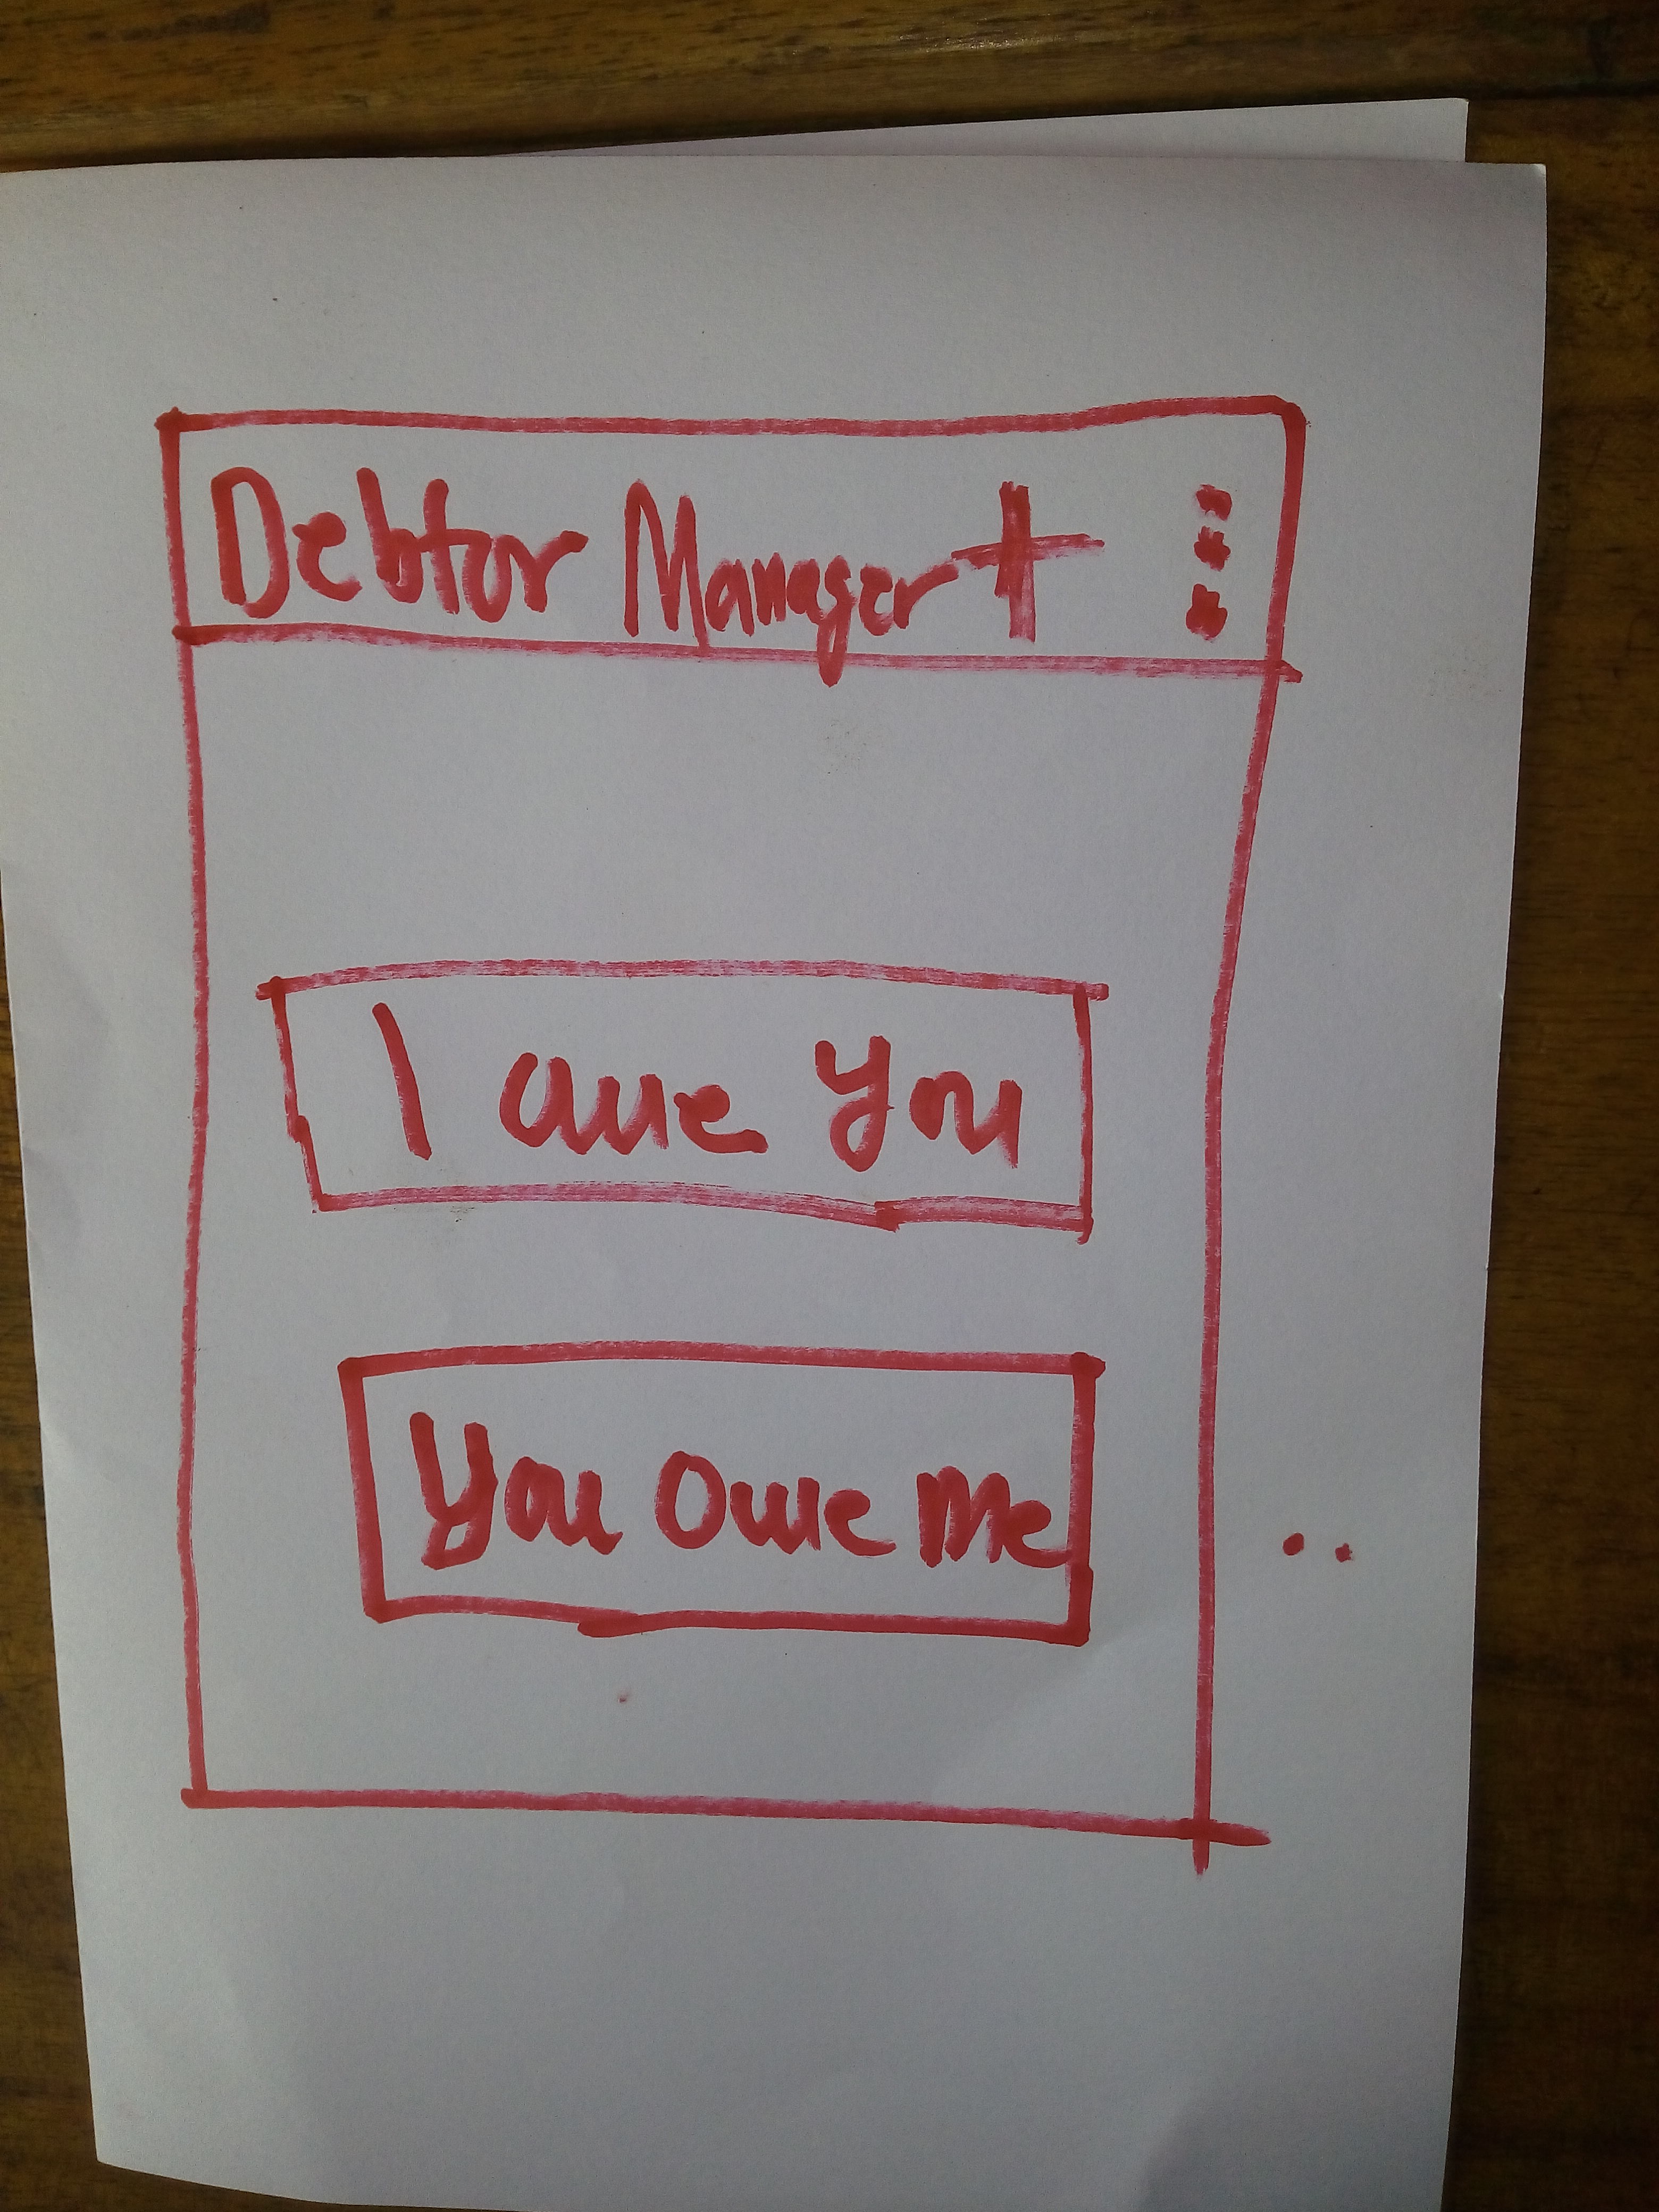 Debtor Manager +
I owe you
You Owe Me